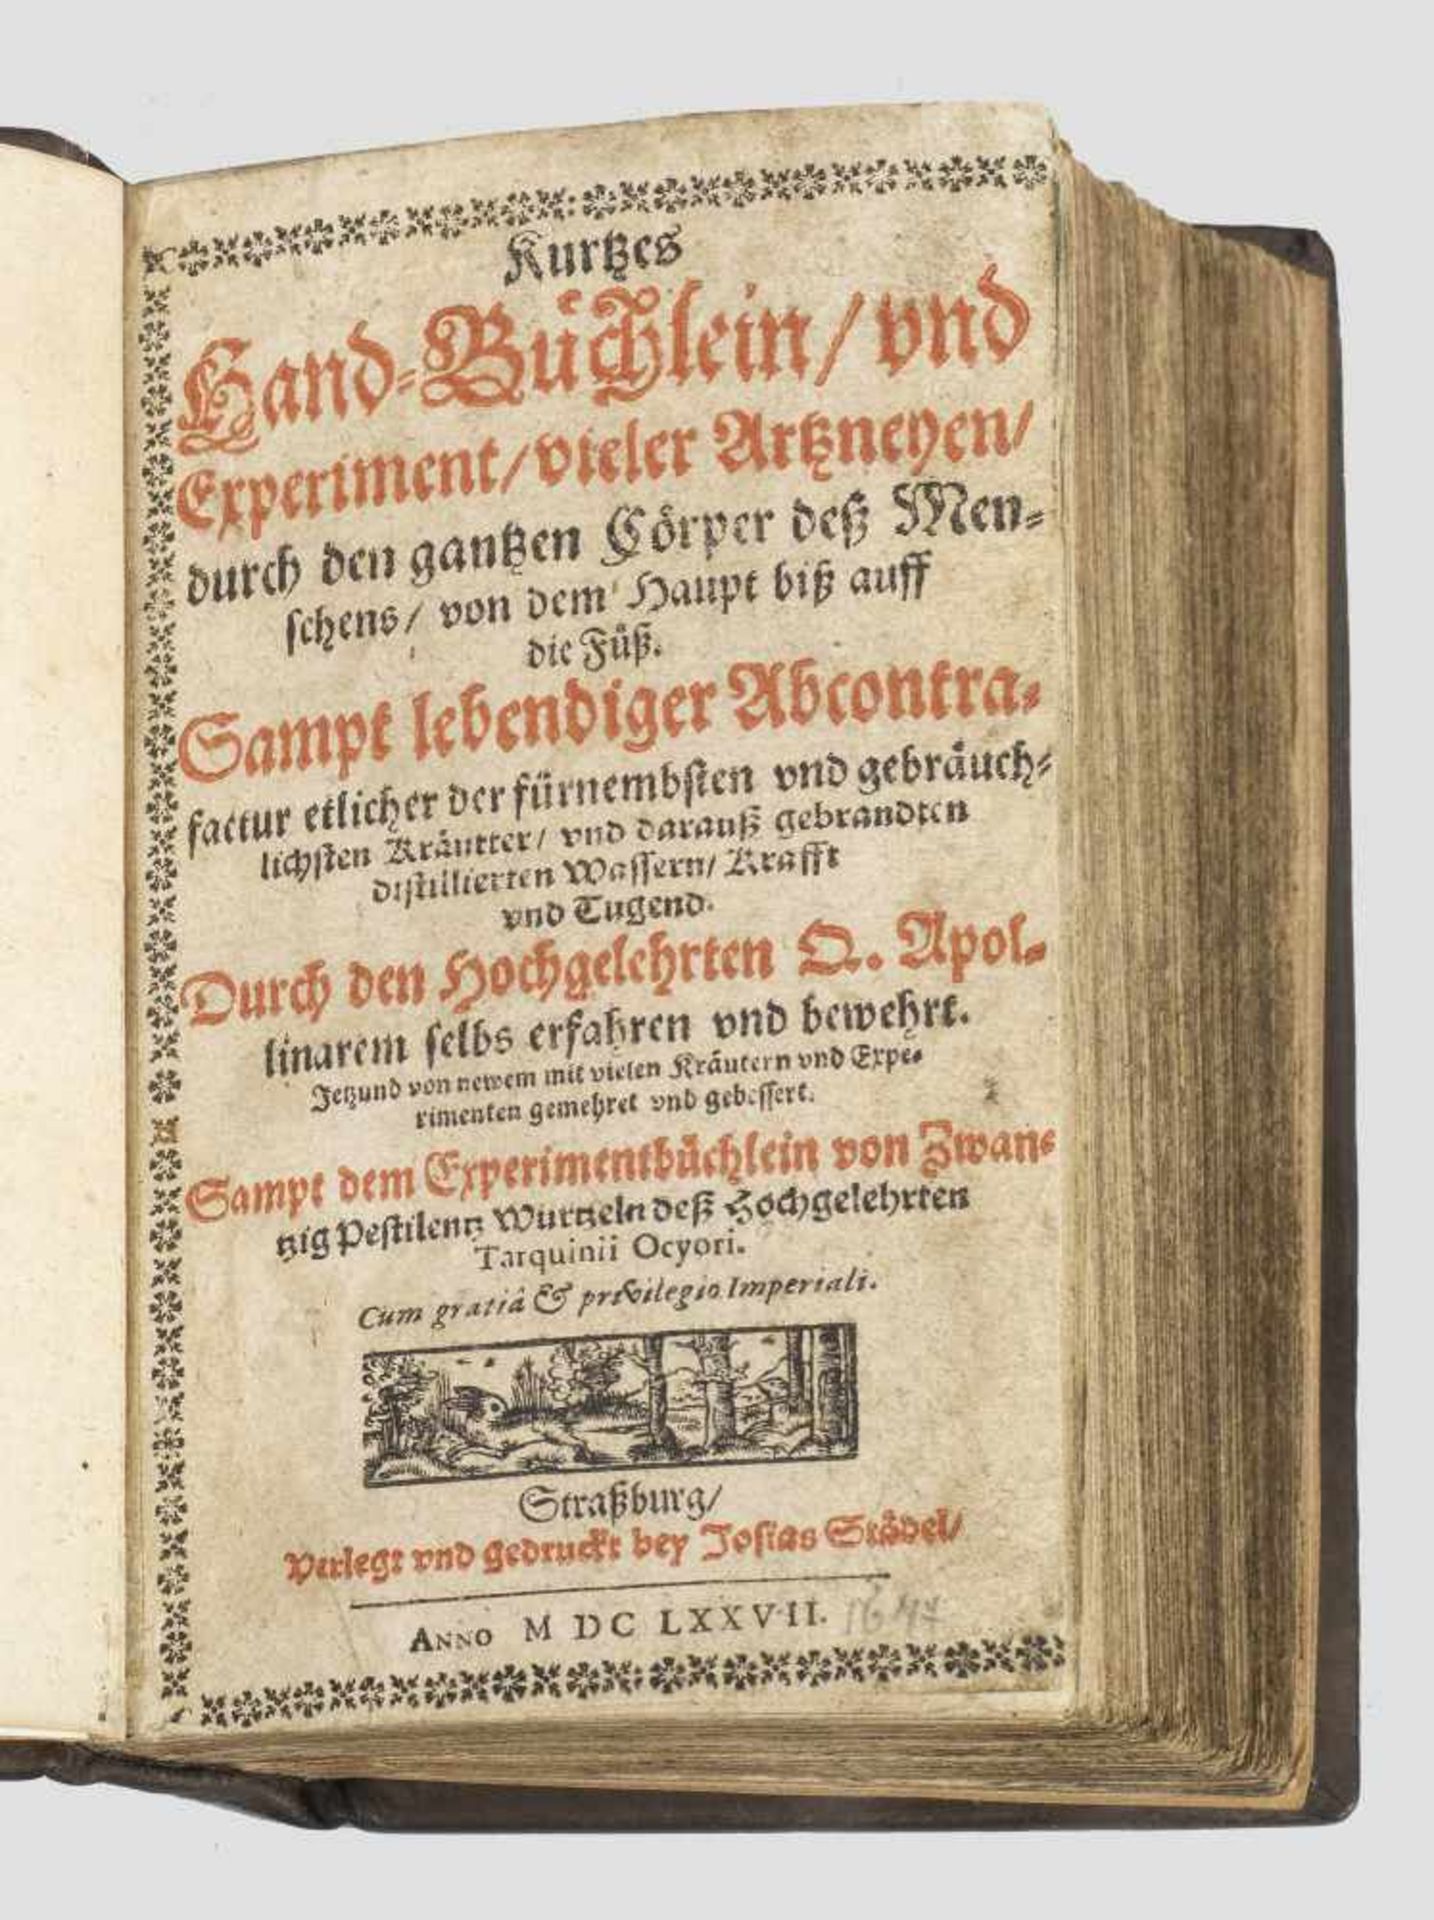 Kurtzes
Hand-Büchlein/ vnd
Experiment/ vieler Artzneyen/
durch den gantzen Cörper deß Men-
schens/ von dem Haupt biß auff
die Füß.
Sampt lebendiger Abcontra-
factur etlicher der fürnembsten vnd gebräuch-
lichsten Kräutter/ vnd darauß gebrandten
distillierten Wassern/ Krafft
vnd Tugend.
Durch den Hochgelehrten Q. Apol-
linarem selbs erfahren vnd bewehrt.
Jetzund von newem mit vielen Kräutern vnd Expe-
rimenten gemehret vnd gebessert.
Sampt dem Experimentbüchlein von Zwan-
tzig Pestilentz Wurtzeln deß Hochgelehrten
Tarquinii Ocyori.
Cum gratiâ & privilegio Imperiali.
Straßburg/
Verlegt vnd gedruckt bey Josias Städel/
ANNO M DC LXXVII. 1677